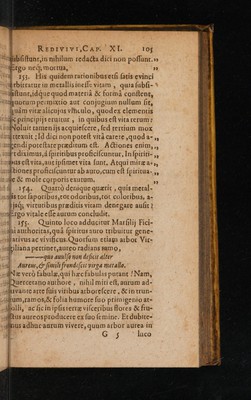 REDIVIVI, CAP. XI. 103
subsistunt, in nihilum redacta dici non possunt.
Ergo nec mortua.
153. His quidem rationibus etsi satis evinci
arbitratur in metallis inesse vitam, quia subsi-
stunt, idque quod materiâ & formâ constent,
quorum primario aut conjugium nullum sit,
quàm vitæ alicujus vinculo, quod ex elementis
& principijs eruitur, in quibus est vita rerum:
Noluit tamen ijs acquiescere, sed tertium mox
intexuit; Id dici non potest vitâ carere, quod a-
gendi potestate præditum est. Actiones enim,
ut diximus, à spiritibus proficiscuntur, In spiriti-
bus est vita, aut ipsimet vita sunt. Atqui mira a-
ctiones proficiscuntur ab auro, cum est spiritua-
le & mole corporis exutum.
154. Quartò denique quærit, quia metal-
lis tot saporibus, tot odoribus, tot coloribus, a-
lijsq; virtutibus præditis vitam denegare ausit?
Ergo vitale esse aurum concludit.
155. Quinto loco adducitur Marsilij Fici-
ni authoritas, quâ spiritus auro tribuitur gene-
rativus ac vivificus Quorsum etiam arbor Vir-
giliana pertinet, aureo radians ramo,
—— quo avulso non deficit alter
Aureus, & simili frondescit virga metallo.
Næ verò fabulæ, quî hæc fabulis probant! Nam,
Quercetano authore, nihil miri est, aurum ad-
juvante arte suis viribus arborescere, & in trun-
cum, ramos, & folia humore suo primigenio at-
tolli, ac sic in ipsis terræ visceribus flores & fru-
ctus aureos producere ex suo semine. Et dubite-
tur adhuc aurum vivere, quum arbor aurea in
G 5 luco